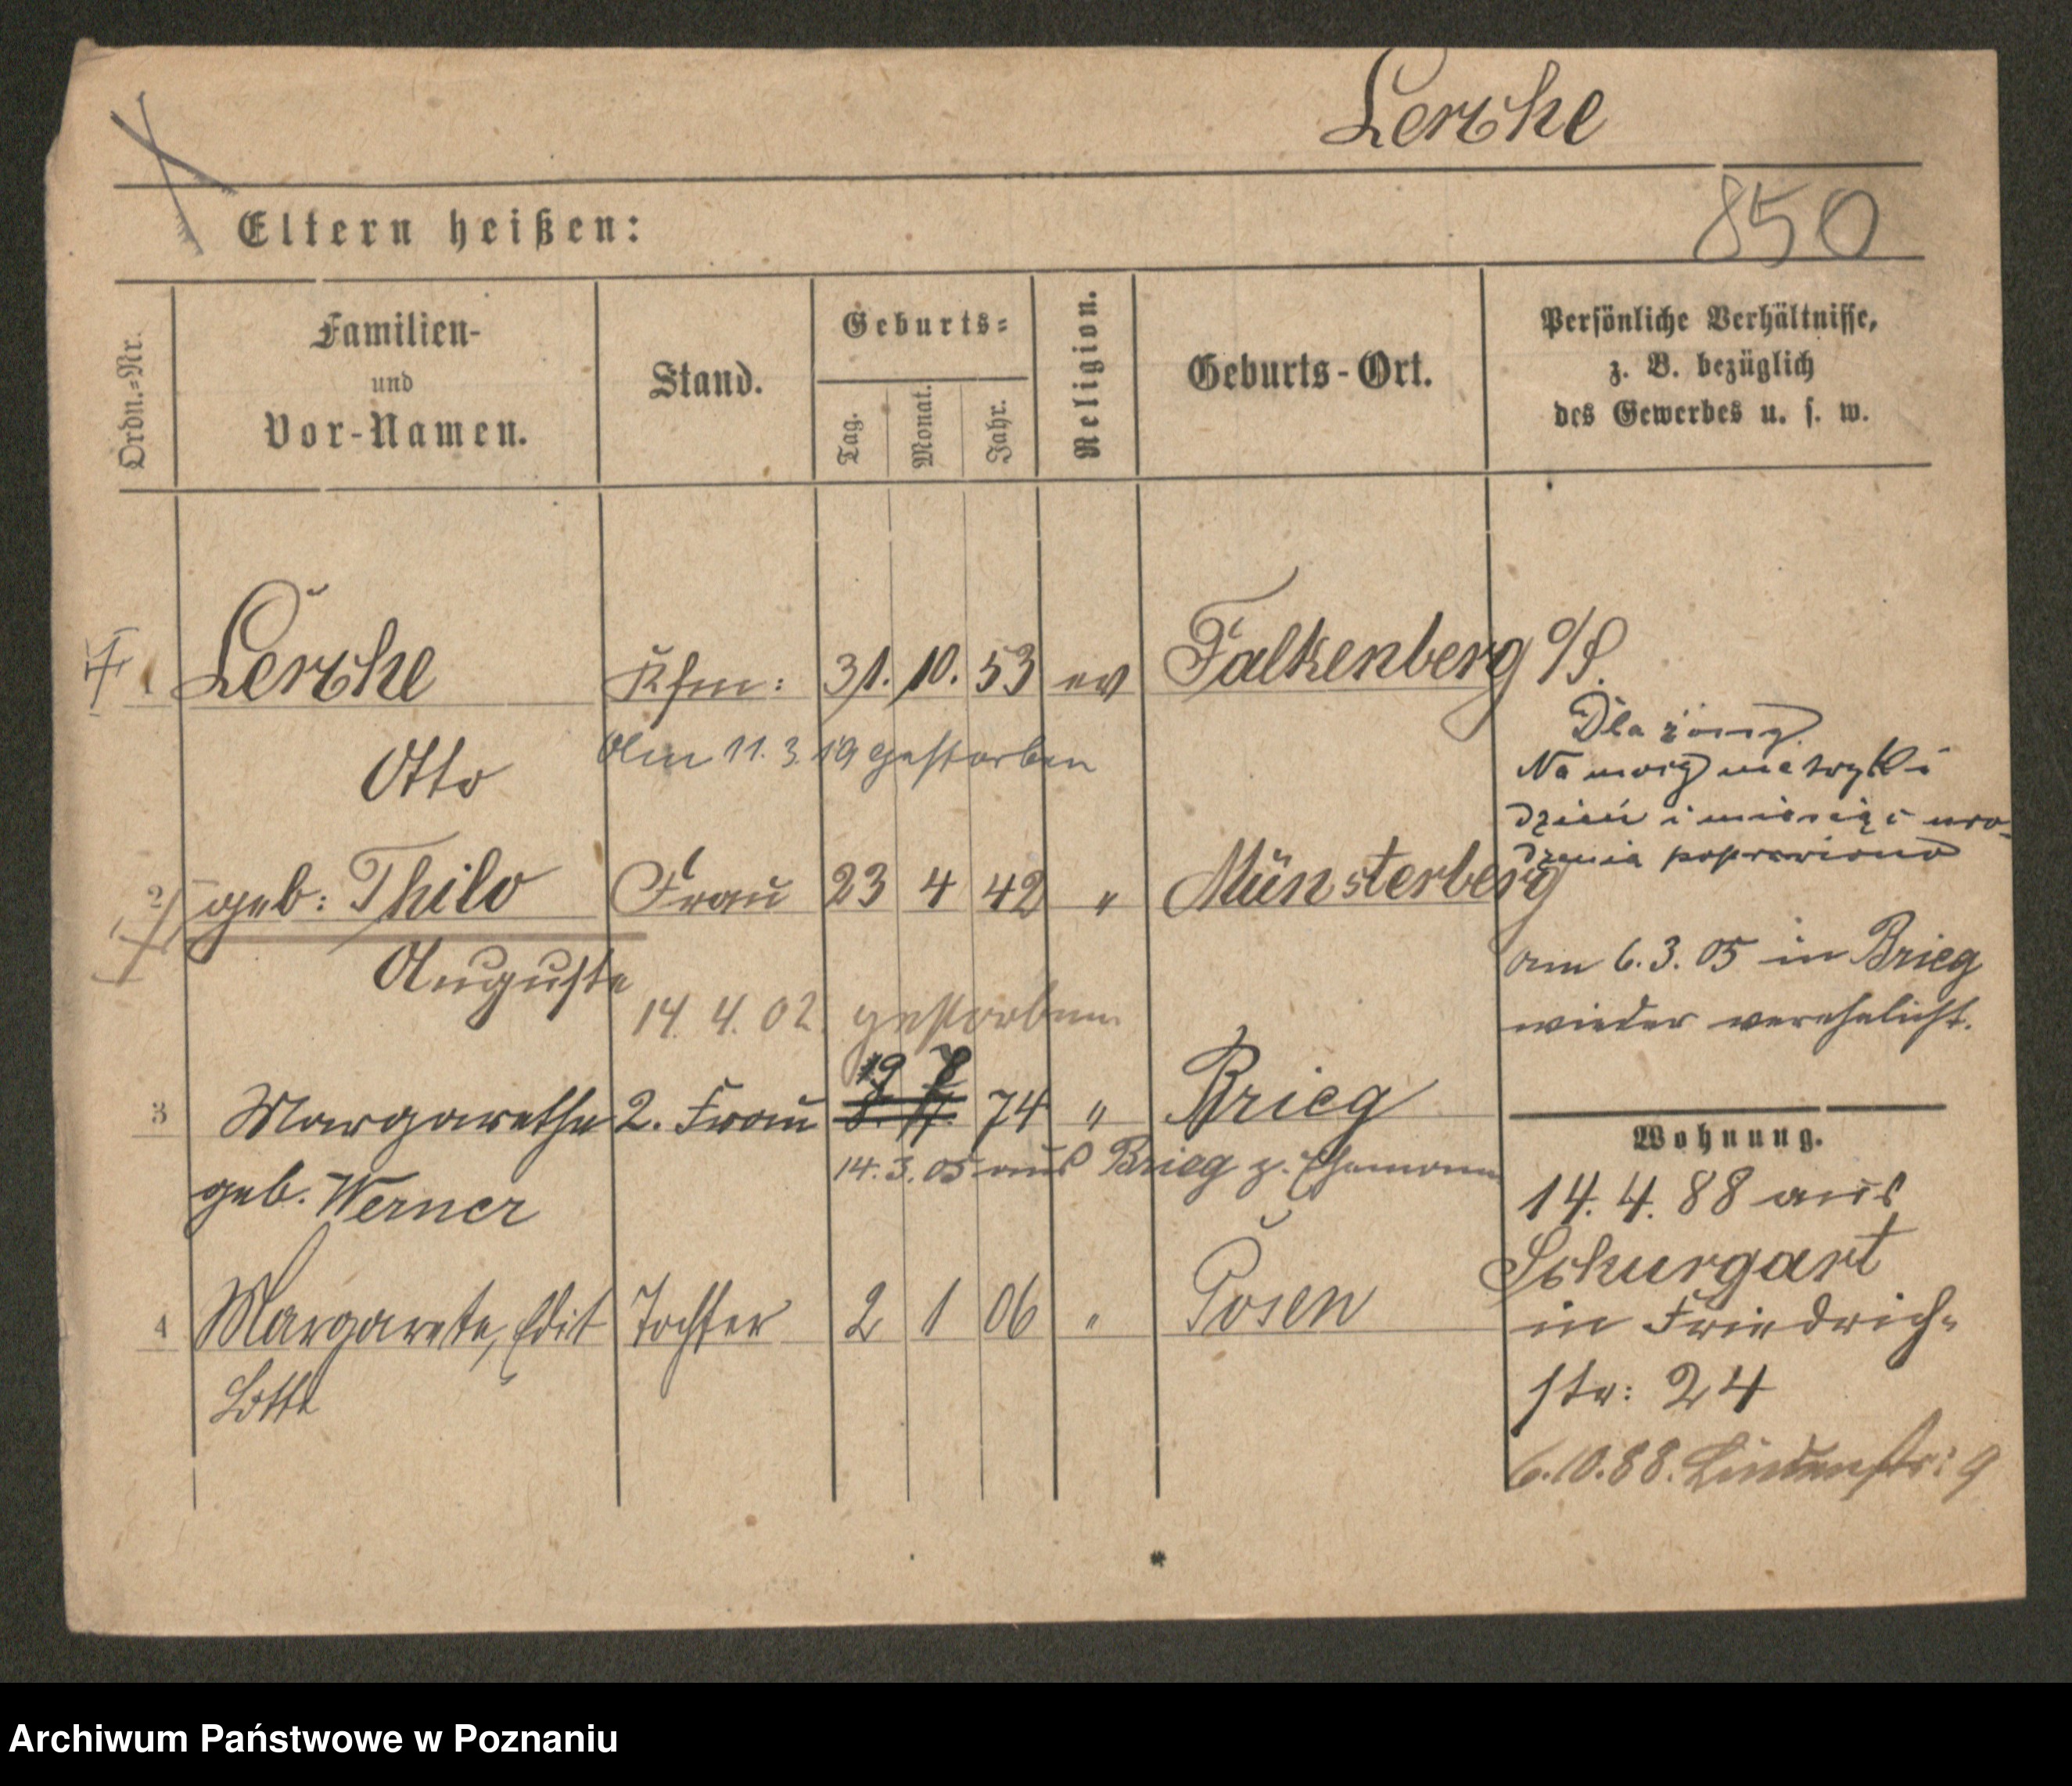 Lerche
850
Eltern heißen:
Ordn.=Nr.
Familien-
und
Vor-Namen.
Stand.
Geburts=
Tag.
Monat.
Jahr.
Religion.
Geburts-Ort.
Persönliche Verhältnisse,
z. B. bezüglich
des Gewerbes u. s. w.
1. Lerche Kfm: 31. 10. 53 ev Falkenberg O/S.
Otto
Am 11. 3. 19 gestorben
Dla żony
Na mocy metryki
dzień i miesiąc uro-
dzenia poprawiono
2 geb: Thilo Frau 23 4 42 " Münsterberg
Auguste
14. 4. 02. gestorben
am 6. 3. 05 in Brieg
wieder verehelicht.
3 Margarethe 2. Frau 19 74 " Brieg
geb. Werner
14. 3. 05 aus Brieg z. Ehemann
4 Margarete, Edit Tochter 2 1 06 " Posen
Lotte
Wohnung.
14. 4. 88 aus
Schurgart
in Friedrich=
str: 24
6. 10. 88. Lindenstr: 9
Archiwum Państwowe w Poznaniu